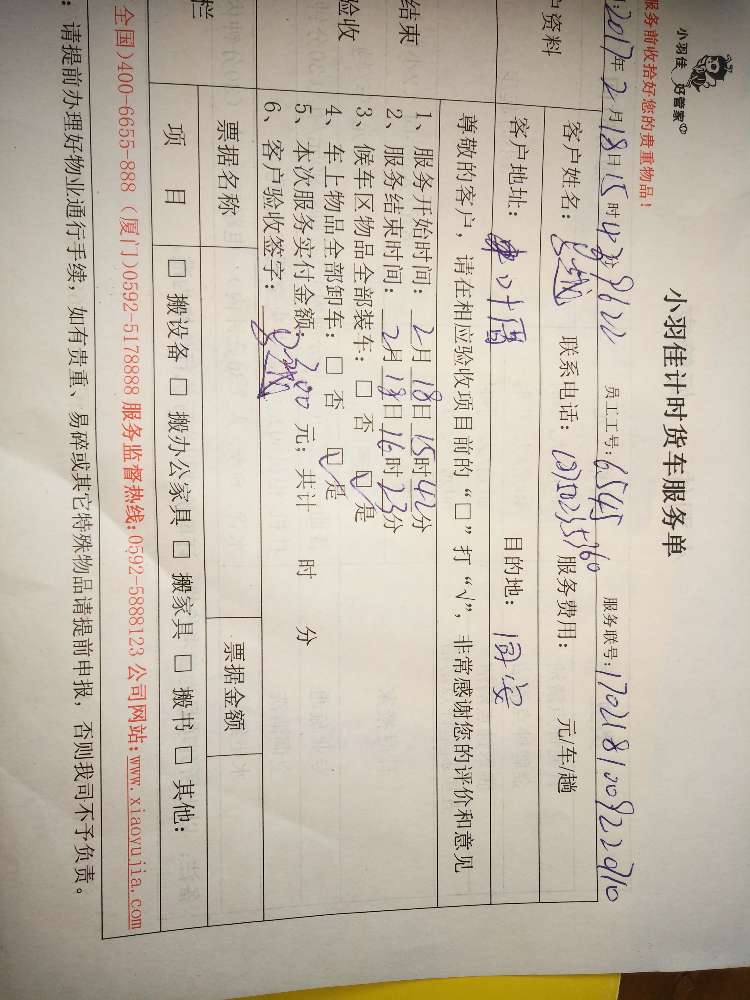 小羽佳 好管家
小羽佳计时货车服务单
服务前收拾好您的贵重物品！
2017年2月18日15时42分 员工工号：6545 服务联号：
户资料
客户姓名： 联系电话： 服务费用： 元/车/趟
客户地址： 目的地：同安
尊敬的客户，请在相应验收项目前的“□”打“√”，非常感谢您的评价和意见
结束
验收
1、服务开始时间：2月18日15时42分
2、服务结束时间：2月18日16时23分
3、候车区物品全部装车：□ 否 ☑ 是
4、车上物品全部卸车：□ 否 ☑ 是
5、本次服务实付金额：300元；共计 时 分
6、客户验收签字：
栏
票据名称 票据金额
项 目 □ 搬设备 □ 搬办公家具 □ 搬家具 □ 搬书 □ 其他：
全国)400-6655-888 (厦门)0592-5178888 服务监督热线:0592-5888123 公司网站:www.xiaoyujia.com
：请提前办理好物业通行手续，如有贵重、易碎或其它特殊物品请提前申报，否则我司不予负责。